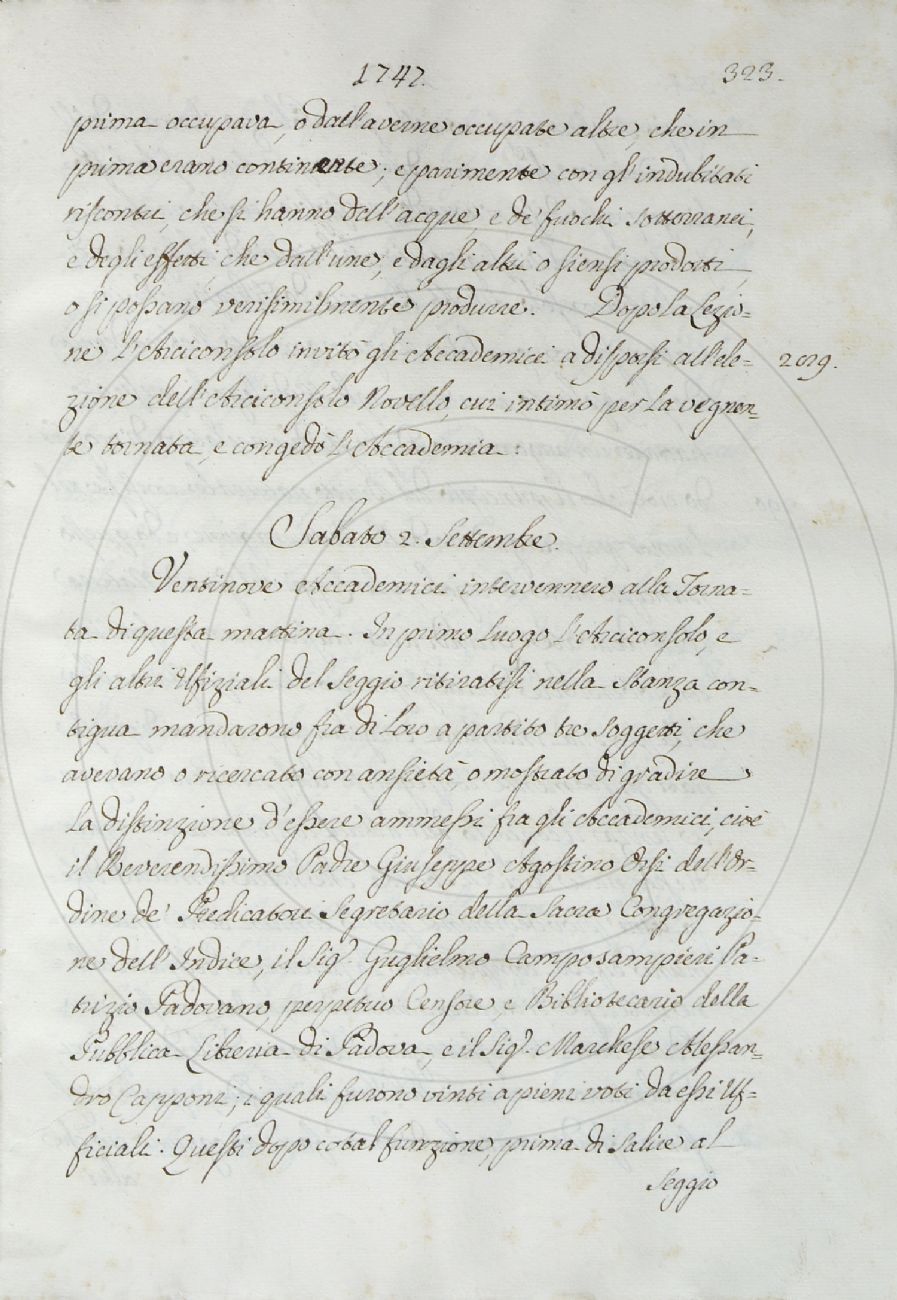 1747.
323.
prima occupava, o dall'averne occupate altre, che in
prima erano continente; e parimente con gl'indubitati
riscontri, che si hanno dell'acque, e de' fuochi sotterranei,
e degli effetti che dall'une, e dagli altri o siensi prodotti,
o si possano verisimilmente produrre. Dopo la Lezio=
ne l'Arciconsolo invitò gli Accademici a disporsi all'ele=
zione dell'Arciconsolo Novello, cui intimò per la vegnen=
te tornata, e congedò l'Accademia.
Sabato 2. Settembre.
Ventinove Accademici intervennero alla Torna=
ta di questa mattina. In primo luogo l'Arciconsolo, e
gli altri Ufiziali del Seggio ritiratisi nella Stanza con=
tigua mandarono fra di loro a partito tre Soggetti, che
avevano o ricercato con ansietà, o mostrato di gradire
la distinzione d'essere ammessi fra gli Accademici, cioè
il Reverendissimo Padre Giuseppe Agostino Orsi dell'Or=
dine de' Predicatori Segretario della Sacra Congregazio=
ne dell'Indice, il Sigr. Guglielmo Camposampieri Pa=
trizio Padovano, perpetuo Censore, e Bibliotecario della
Pubblica Libreria di Padova, e il Sigr. Marchese Alessan=
dro Capponi; i quali furono vinti a pieni voti da essi Uf=
ficiali. Questi dopo cotal funzione, prima di salire al
Seggio